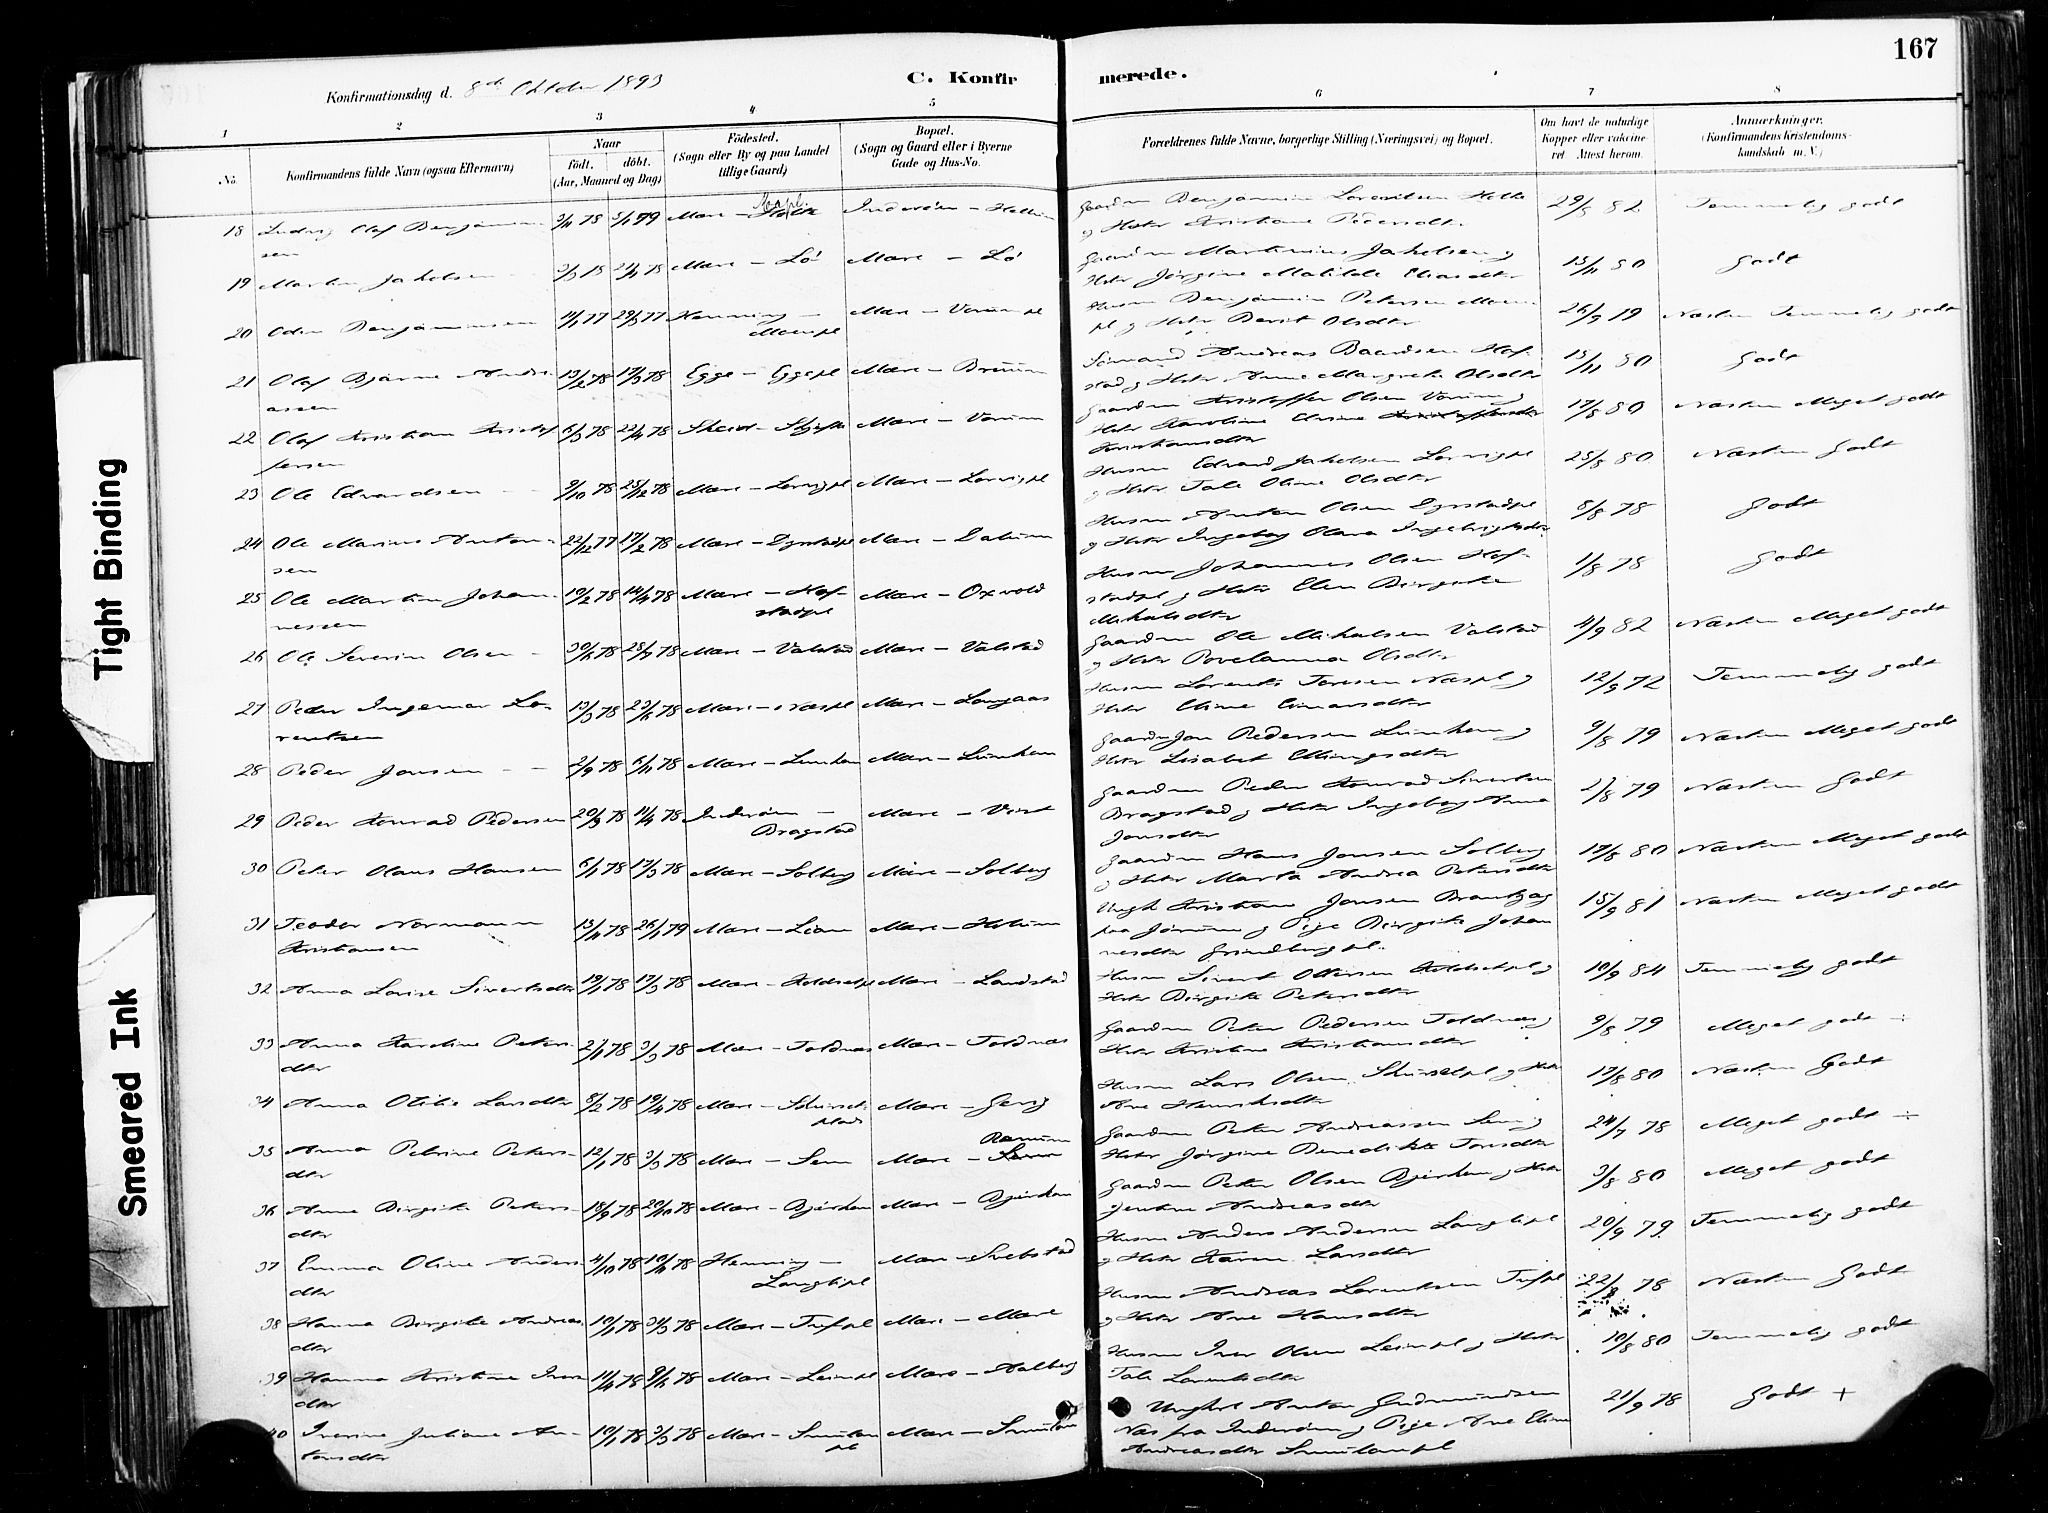 167
Konfirmationsdag d. 8de Oktober 1893
C. Konfirmerede.
1 2 3 4 5 6 7 8
No. | Konfirmandens fulde Navn (ogsaa Efternavn) | Naar født. døbt. (Aar, Maaned og Dag) | Fødested. (Sogn eller By og paa Landet tillige Gaard) | Bopæl. (Sogn og Gaard eller i Byerne Gade og Hus-No. | Forældrenes fulde Navne, borgerlige Stilling (Næringsvei) og Bopæl. | Om havt de naturlige Kopper eller vaccineret Attest herom. | Anmærkninger. (Konfirmandens Kristendomskundskab m. V.)
18 Ludvig Olaf Benjaminsen 78 79 Mære Inderøen Gaardm Benjamin og Hstr Kristiane Pedersdtr 29/8 82 Temmelig godt
19 Martin Jakobsen 78 Mære - Lø Mære - Lø Gaardm Martinius Jakobsen og Hstr Jørgine Matilde Eliasdtr 15/11 80 Godt
20 Odin Benjaminsen 77 77 Henning - Moenpl Mære - Vorumpl Husm Benjamin Petersen Moenpl og Hstr Berit Olsdtr 26/9 79 Næsten Temmelig godt
21 Olaf Bjarne Andreassen 13/2 78 17/3 78 Egge - Eggepl Mære - Sømand Andreas Baardsen Hofstad og Hstr Anne Margrete Olsdtr 15/11 80 Godt
22 Olaf Kristian Kristoffersen 6/3 78 22/4 78 Mære - Vorum Gaardm Kristoffer Olsen Vorum og Hstr Karoline Kristiansdtr 17/8 80 Næsten Meget godt
23 Ole Edvardsen 9/10 78 25/12 78 Mære - Lorvigpl Mære - Lorvigpl Husm Edvard Jakobsen Lorvigpl og Hstr Tale Oline Olsdtr 25/8 80 Næsten Godt
24 Ole Marius Antonsen 22/12 77 17/2 78 Mære - Dyrstadpl Mære - Dalum Husm Anton Olsen Dyrstadpl og Hstr Ingeborg Olava Ingebrigtsdtr 8/8 78 Godt
25 Ole Martin Johannessen 19/2 78 14/4 78 Mære - Hofstadpl Mære - Oxvold Husm Johannes Olsen Hofstadpl og Hstr Elen Birgitte Mikalsdtr 1/8 78 Godt
26 Ole Severin Olsen 78 78 Mære - Valstad Mære - Valstad Gaardm Ole Mikalsen Valstad og Hstr Povelanna Olsdtr 4/9 82 Næsten Meget godt
27 Peder Ingemar Lorentsen 13/3 78 78 Mære - Næspl Mære - Langaas Husm Lorents Toresen Næspl og Hstr Eline Einarsdtr 12/9 72 Temmelig godt
28 Peder Jonsen 2/9 78 6/11 78 Mære - Lunhem Mære - Lunhem Gaardm Jon Pedersen Lunhem og Hstr Lisabet Ellingsdtr 9/8 79 Næsten Meget godt
29 Peder Konrad Pedersen 20/3 78 11/4 78 Inderøen - Bragstad Mære - Vist Gaardm Peder Konrad Sivertsen Bragstad og Hstr Ingeborg Anna Jonsdtr 79 Næsten Godt
30 Peter Olaus Hansen 6/1 78 17/3 78 Mære - Solberg Mære - Solberg Gaardm Hans Jonsen Solberg og Hstr Marta Andrea Petersdtr 17/8 80 Næsten Meget godt
31 Teodor Normann Kristiansen 13/11 78 26/1 79 Mære - Mære - Ungk Kristian Jonsen og Pige Birgitte Johannesdtr Grindbergpl. 15/9 81 Næsten Meget godt
32 Anna Lovise Sivertsdtr 19/1 78 17/3 78 Mære - Mære - Landstad Husm Sivert Ottersen og Hstr Birgitte Petersdtr 10/9 84 Temmelig godt
33 Anna Karoline Petersdtr 78 3/3 78 Mære - Toldnæs Mære - Toldnæs Gaardm Peter Pedersen Toldnæs og Hstr Kristine Kristiansdtr 9/8 79 Meget godt ÷
34 Anna Otilie Larsdtr 8/2 78 19/4 78 Mære - Mære - Husm Lars Olsen og Hstr Ane Henriksdtr 17/8 80 Næsten Godt
35 Anna Petrine Petersdtr 12/1 78 3/3 78 Mære - Sem Mære - Gaardm Peter Andreassen Sem og Hstr Jørgine Benedikte Toresdtr 24/7 78 Meget godt ÷
36 Anne Birgitte Petersdtr 18/9 78 20/10 78 Mære - Bjerkem Mære - Bjerkem Gaardm Peter Olsen Bjerkem og Hstr Jentine Andreasdtr 3/8 80 Meget godt
37 Emma Oline Andersdtr 4/10 78 78 Henning - Langlipl Mære - Husm Anders Andersen Langlipl og Hstr Karen Larsdtr 20/9 79 Temmelig godt
38 Hanna Birgitte Andreasdtr 19/1 78 78 Mære - Tufpl Mære - Mære Husm Andreas Lorentsen Tufpl og Hstr Ane Hansdtr 22/8 78 Næsten Godt
39 Hanna Kristine Iversdtr 11/4 78 9/6 78 Mære - Leinpl Mære - Aalberg Husm Iver Olsen Leinpl og Hstr Tale Lorentsdtr 10/8 80 Temmelig godt
40 Iverine Juliane Antonsdtr 19/1 78 3/3 78 Mære - Mære - Ungkrl Anton Gudmundsen Næs fra Inderøen og Pige Ane Eline Andreasdtr 21/9 78 Godt +
Tight Binding
Smeared Ink